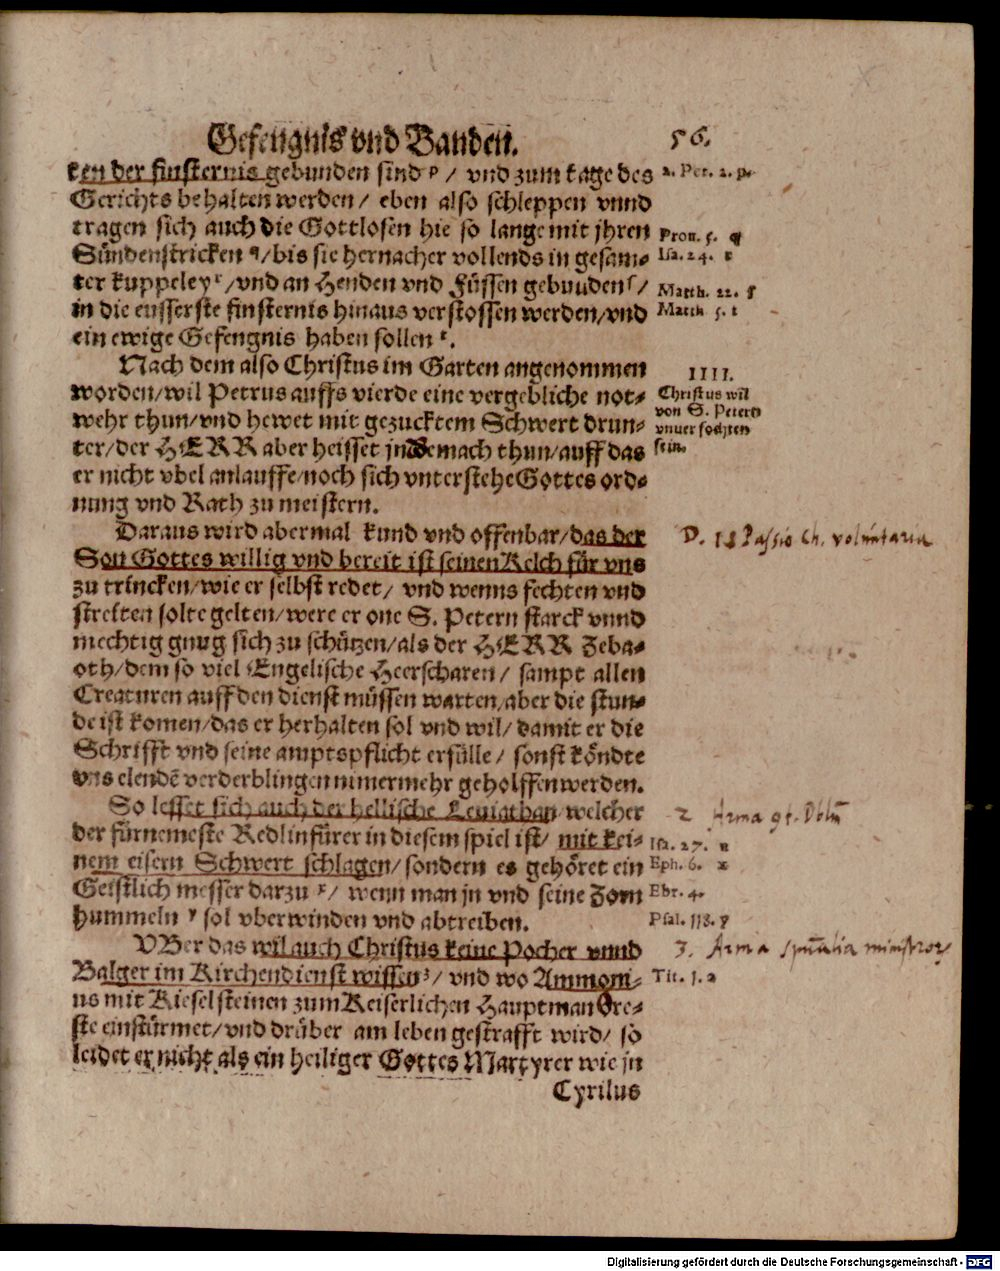 Gefengnis vnd Banden. 56.
ken der finsternis gebunden sind p / vnd zum tage des 2. Pet. 2. p.
Gerichts behalten werden / eben also schleppen vnnd
tragen sich auch die Gottlosen hie so lange mit jhren Prou. 5. q
Sündenstricken q / bis sie hernacher vollends in gesam- Isa. 24. r
ter kuppeley r / vnd an Henden vnd Füssen gebunden s / Matth. 22. s
in die eusserste finsternis hinaus verstossen werden / vnd Matth. 5. t
ein ewige Gefengnis haben sollen t.
Nach dem also Christus im Garten angenommen IIII.
worden / wil Petrus auffs vierde eine vergebliche not- Christus wil
wehr thun / vnd hewet mit gezucktem Schwert drun- von S. Petern
ter / der HERR aber heisset jn Gemach thun / auff das vnuerfochten sein.
er nicht vbel anlauffe / noch sich vnterstehe Gottes ord-
nung vnd Rath zu meistern.
Daraus wird abermal kund vnd offenbar / das der D. 1 Passio Ch. voluntaria
Son Gottes willig vnd bereit ist seinen Kelch für vns
zu trincken / wie er selbst redet / vnd wenns fechten vnd
streiten solte gelten / were er one S. Petern starck vnnd
mechtig gnug sich zu schützen / als der HERR Zeba-
oth / dem so viel Engelische Heerscharen / sampt allen
Creaturen auff den dienst müssen warten / aber die stun-
de ist komen / das er herhalten sol vnd wil / damit er die
Schrifft vnd seine amptspflicht erfülle / sonst köndte
vns elendē verderblingen nimermehr geholffen werden.
So lesset sich auch der hellische Leuiathan welcher 2 Arma
der fürnemeste Redlinfürer in diesem spiel ist / mit kei- Isa. 27. u
nem eisern Schwert schlagen / sondern es gehöret ein Eph. 6. x
Geistlich messer darzu x / wenn man jn vnd seine Zorn Ebr. 4.
hummeln y sol vberwinden vnd abtreiben. Psal. 118. y
VBer das wil auch Christus keine Pocher vnnd 3. Arma
Balger im Kirchendienst wissen z / vnd wo Ammoni- Tit. 1. z
us mit Kieselsteinen zum Keiserlichen Hauptman Ore-
ste einstürmet / vnd drüber am leben gestrafft wird / so
leidet er nicht als ein heiliger Gottes Martyrer wie jn
Cyrilus
Digitalisierung gefördert durch die Deutsche Forschungsgemeinschaft - DFG